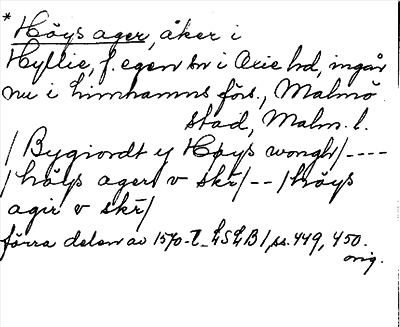 * Höys ager, åker i
Hyllie, f. egen sn i Oxie hd, ingår
nu i Limhamns förs., Malmö
stad, Malm. l.
/ Bygiordt y Høys wongh/----
/höys ager v skr̄/--/höys
agir v skr̄/
förra delen av 1570-t. LSLB / ss. 449, 450.
orig.